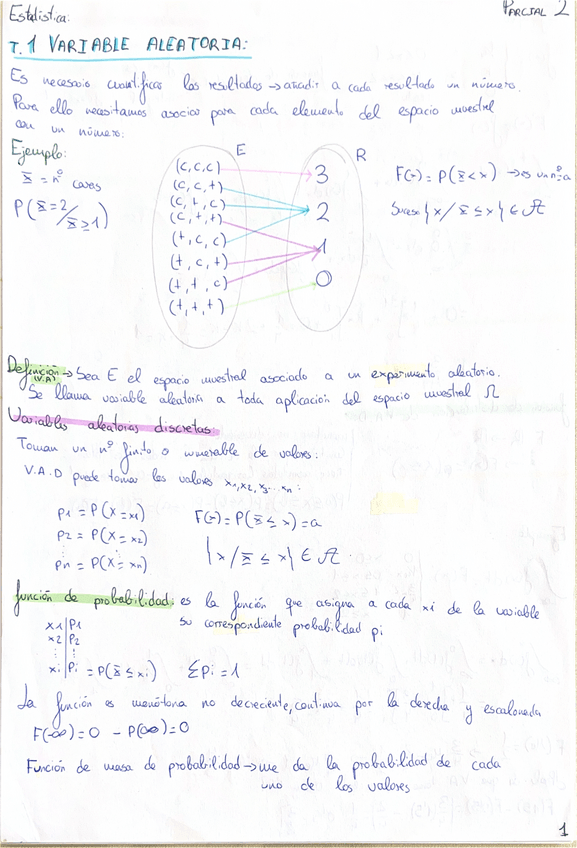 Estadística.
PARCIAL 2
T.1 VARIABLE ALEATORIA:
Es necesario cuantificar los resultados → añadir a cada resultado un número.
Para ello necesitamos asociar para cada elemento del espacio muestral
con un número:
Ejemplo:
E
R
x̄ = nº caras
P(x̄=2/x̄≥1)
(c,c,c)
(c,c,+)
(c,+,c)
(c,+,+)
(+,c,c)
(+,c,+)
(+,+,c)
(+,+,+)
3
2
1
0
F(x) = P(x̄<x) → es un nº=a
Suceso {x/x̄≤x} ∈ A
Definición (V.A) → Sea E el espacio muestral asociado a un experimento aleatorio.
Se llama variable aleatoria a toda aplicación del espacio muestral Ω
Variables aleatorias discretas
Toman un nº finito o numerable de valores:
V.A.D puede tomar los valores x1,x2,x3...xn:
P1 = P(X=x1)
P2 = P(X=x2)
⋮
Pn = P(X=xn)
F(x)=P(x̄≤x)=a
{x/x̄≤x} ∈ A
función de probabilidad: es la función que asigna a cada xi de la variable
su correspondiente probabilidad pi
x1 | P1
x2 | P2
⋮ ⋮
xi | Pi = P(x̄≤xi) ΣPi=1
La función es monótona no decreciente, continua por la derecha y escalonada
F(-∞)=0 - P(∞)=0
Función de masa de probabilidad → me da la probabilidad de cada
uno de los valores
1